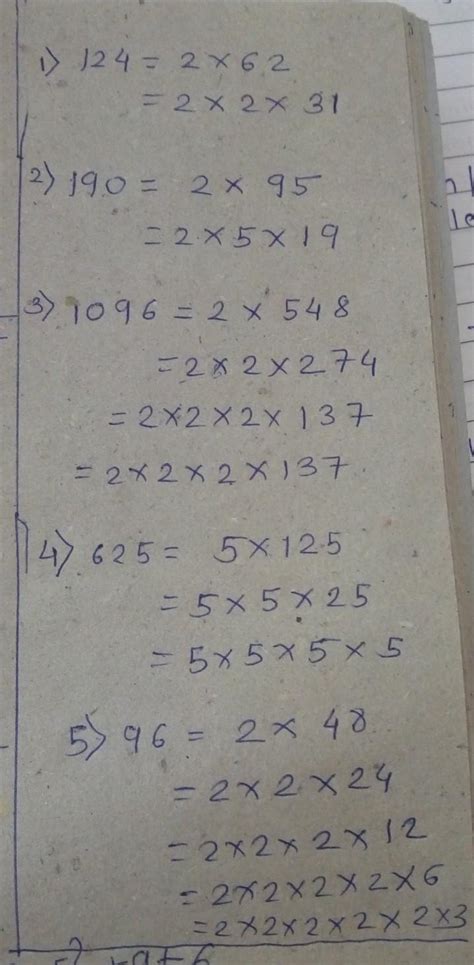 1) 124 = 2 × 62
= 2 × 2 × 31
2) 190 = 2 × 95
= 2 × 5 × 19
3) 1096 = 2 × 548
= 2 × 2 × 274
= 2 × 2 × 2 × 137
= 2 × 2 × 2 × 137
4) 625 = 5 × 125
= 5 × 5 × 25
= 5 × 5 × 5 × 5
5) 96 = 2 × 48
= 2 × 2 × 24
= 2 × 2 × 2 × 12
= 2 × 2 × 2 × 2 × 6
= 2 × 2 × 2 × 2 × 2 × 3